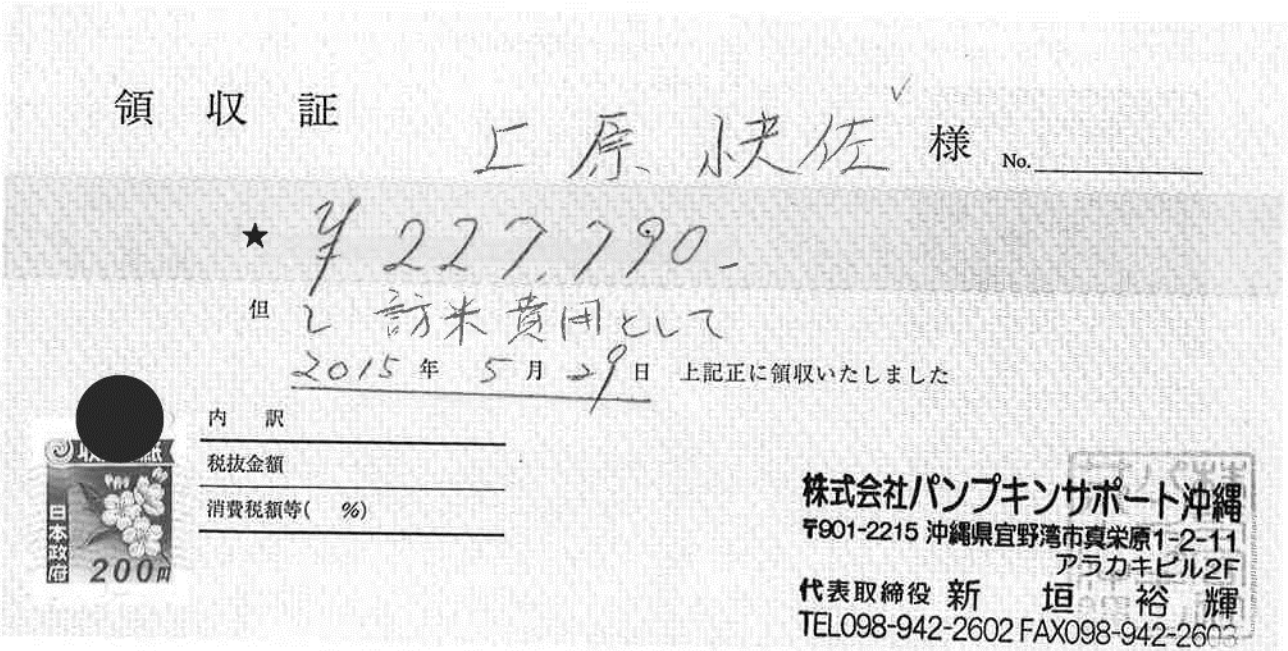 領収証
上原快佐 様 No.
★ ¥227,790-
但し 訪米費用として
2015年5月29日 上記正に領収いたしました
内訳
税抜金額
消費税額等( %)
日本政府
200円
株式会社パンプキンサポート沖縄
〒901-2215 沖縄県宜野湾市真栄原1-2-11
アラカキビル2F
代表取締役 新垣裕輝
TEL098-942-2602 FAX098-942-2603